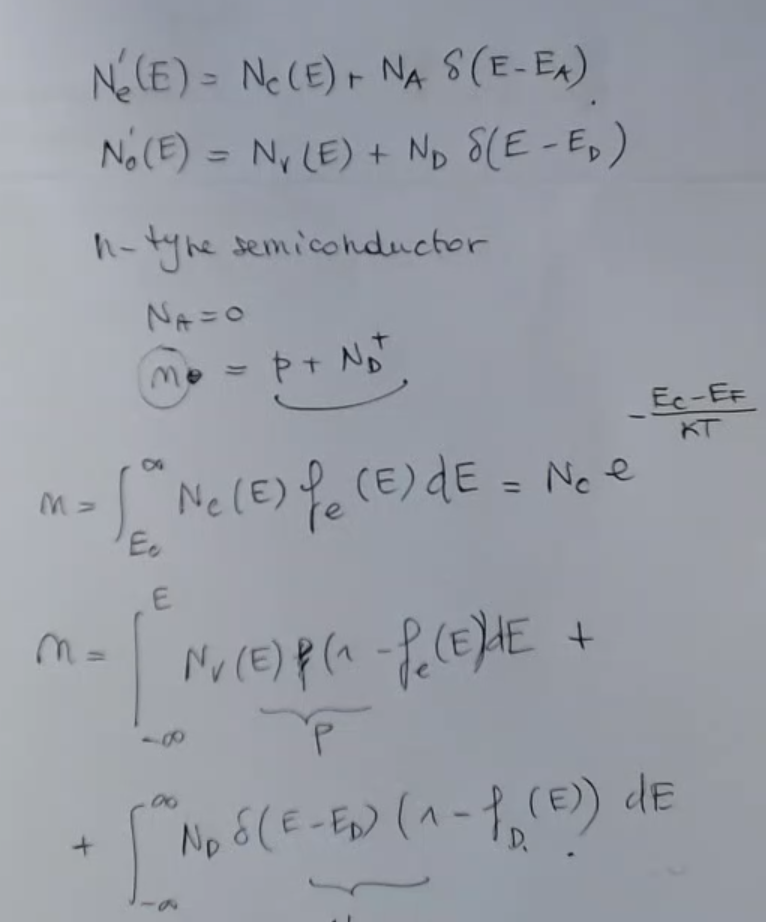 N'e(E) = Nc(E) + NA δ(E-EA)
N'o(E) = Nv(E) + ND δ(E-ED)
n-type semiconductor
NA = 0
n = p + ND⁺
n = ∫_{Ec}^{∞} Nc(E) fe(E) dE = Nc e^{-(Ec-EF)/KT}
n = ∫_{-∞}^{E} Nv(E) (1 - fe(E)) dE +
p
+ ∫_{-∞}^{∞} ND δ(E-ED) (1 - fD(E)) dE